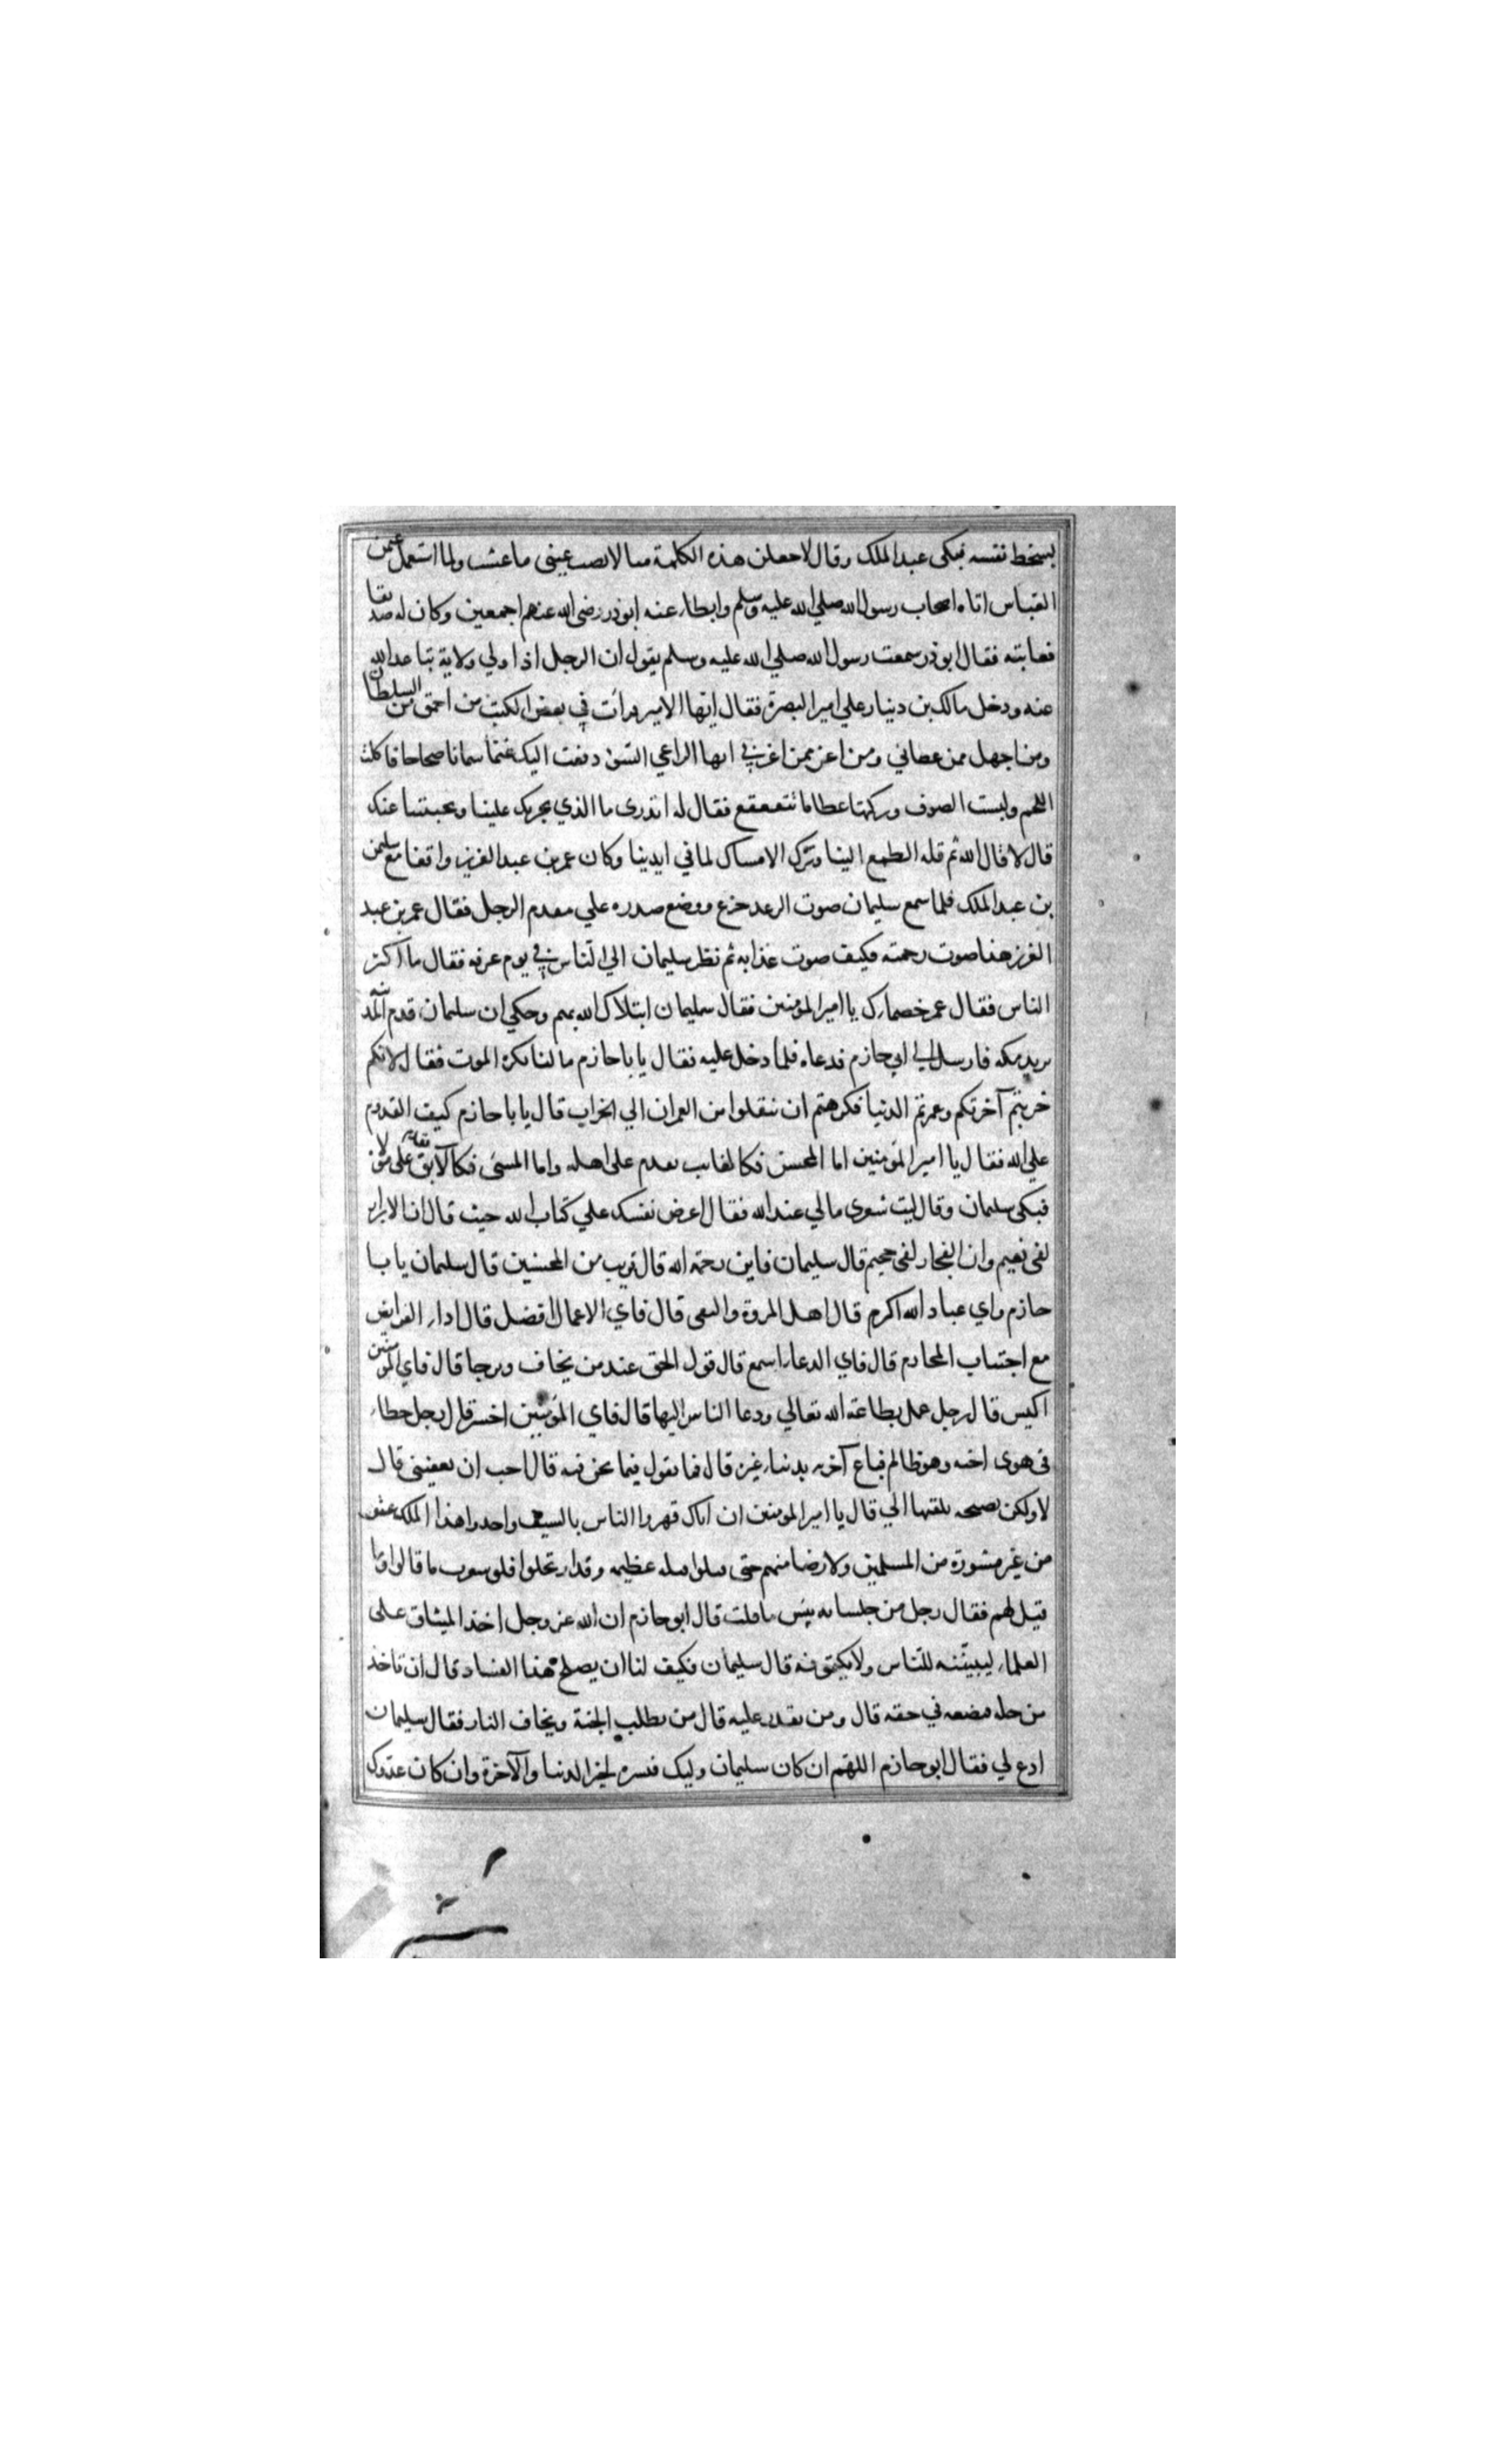 بسخط نفسه فبكى عبد الملك وقال لاجعلن هذه الكلمة مثالا نصب عينى ما عشت ولما استعمل عثمن
العباس اتاه اصحاب رسول الله صلي الله عليه وسلم وابطاء عنه ابوذر رضى الله عنهم اجمعين وكان له صديقا
فعاتبه فقال ابوذر سمعت رسول الله صلي الله عليه وسلم يقول ان الرجل اذا ولي ولاية تباعد الله
عنه ودخل مالك بن دينار علي امير البصرة فقال ايها الامير قرأت في بعض الكتب من احمق من السلطان
ومن اجهل ممن عصاني ومن اعز ممن اعز بي ايها الراعي السوء دفعت اليك غنما سمانا صحاحا فاكلت
اللحم ولبست الصوف وتركتها عظاما تتقعقع فقال له اتدرى ما الذي يجريك علينا ويجبننا عنك
قال لا قال الله ثم قله الطمع الينا وترك الامساك لما في ايدينا وكان عمر بن عبد العزيز واقفا مع سليمن
بن عبد الملك فلما سمع سليمان صوت الرعد جزع ووضع صدره علي مقدم الرحل فقال عمر بن عبد
العزيز هذا صوت رحمته فكيف صوت عذابه ثم نظر سليمان الي الناس في يوم عرفه فقال ما اكثر
الناس فقال عمر خصماك يا امير المؤمنين فقال سليمان ابتلاك الله بهم وحكي ان سليمان قدم المدينه
يريد مكه فارسل الي ابي حازم فدعاه فلما دخل عليه فقال يا با حازم ما لنا نكره الموت فقال لانكم
خربتم آخرتكم وعمرتم الدنيا فكرهتم ان تنقلوا من العمران الي الخراب قال يا با حازم كيف القدوم
علي الله فقال يا امير المؤمنين اما المحسن فكالغايب يقدم على اهله واما المسئ فكالابق يقدم على مولا
فبكى سليمان وقال ليت شعرى مالي عند الله فقال اعرض نفسك علي كتاب الله حيث قال ان الابرار
لفى نعيم وان الفجار لفى جحيم قال سليمان فاين رحمة الله قال قريب من المحسنين قال سليمان يا با
حازم واي عباد الله اكرم قال اهل المروة والتقى قال فاي الاعمال افضل قال اداء الفرايض
مع اجتناب المحارم قال فاي الدعاء اسمع قال قول الحق عند من يخاف ويرجا قال فاي المومنين
اكيس قال رجل عمل بطاعة الله تعالي ودعا الناس اليها قال فاي المؤمنين اخسر قال رجل خطاء
فى هوى اخيه وهو ظالم فباع آخرته بدنياء غيره قال فما تقول فيما نحن فيه قال احب ان تعفينى قال
لا ولكن نصيحه تلقيها الي قال يا امير المومنين ان اباك قهروا الناس بالسيف واخذوا هذا الملك عنوه
من غير مشورة من المسلمين ولا رضا منهم حتى قتلوا قتله عظيمه وقد ارتحلوا فلو شعرت ما قالوا وما
قيل لهم فقال رجل من جلسائه بئس ما قلت قال ابو حازم ان الله عز وجل اخذ الميثاق على
العلماء ليبيننه للناس ولا يكتمونه قال سليمان فكيف لنا ان يصلح هذا الفساد قال ان تاخذ
من حله فتضعه في حقه قال ومن يقدر عليه قال من يطلب الجنة ويخاف النار فقال سليمان
ادع لي فقال ابو حازم اللهم ان كان سليمان وليك فيسره لخير الدنيا والآخرة وان كان عدوك